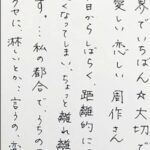 界でいちばん☆大切で
愛しい恋しい 周作さん
日からしばらく、距離的に
くなってしまい、ちょっと離れ離
す。…私の都合で、うちの
クセに、淋しいとか…言うの、変